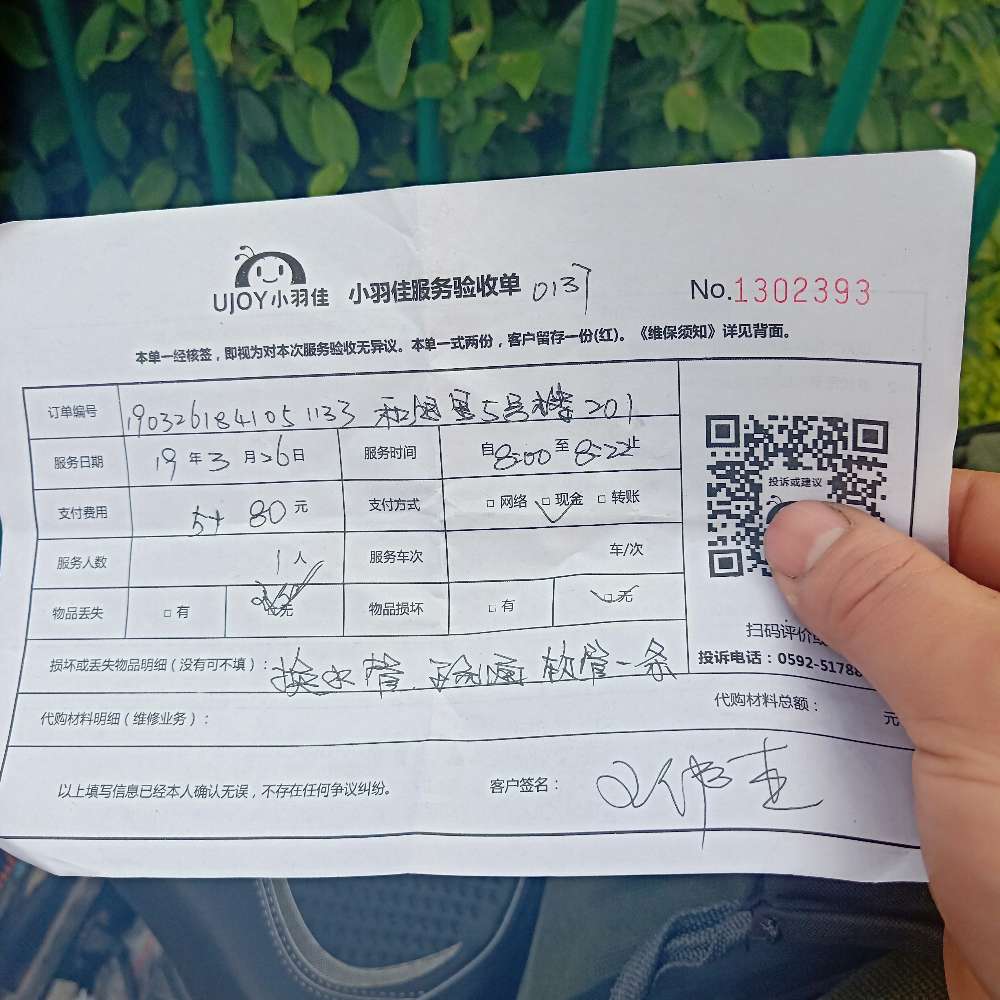 UJOY小羽佳 小羽佳服务验收单 0137 No.1302393
本单一经核签，即视为对本次服务验收无异议。本单一式两份，客户留存一份(红)。《维保须知》详见背面。
订单编号 190326184105 1133 5号楼 201
服务日期 19年3月26日 服务时间 自8:00至8:22止
支付费用 80元 支付方式 □网络 □现金 □转账
服务人数 1人 服务车次 车/次
物品丢失 □有 □无 物品损坏 □有 □无
损坏或丢失物品明细（没有可不填）： 换水管 软管一条
代购材料明细（维修业务）： 代购材料总额： 元
以上填写信息已经本人确认无误，不存在任何争议纠纷。 客户签名：
投诉或建议
扫码评价
投诉电话：0592-5178